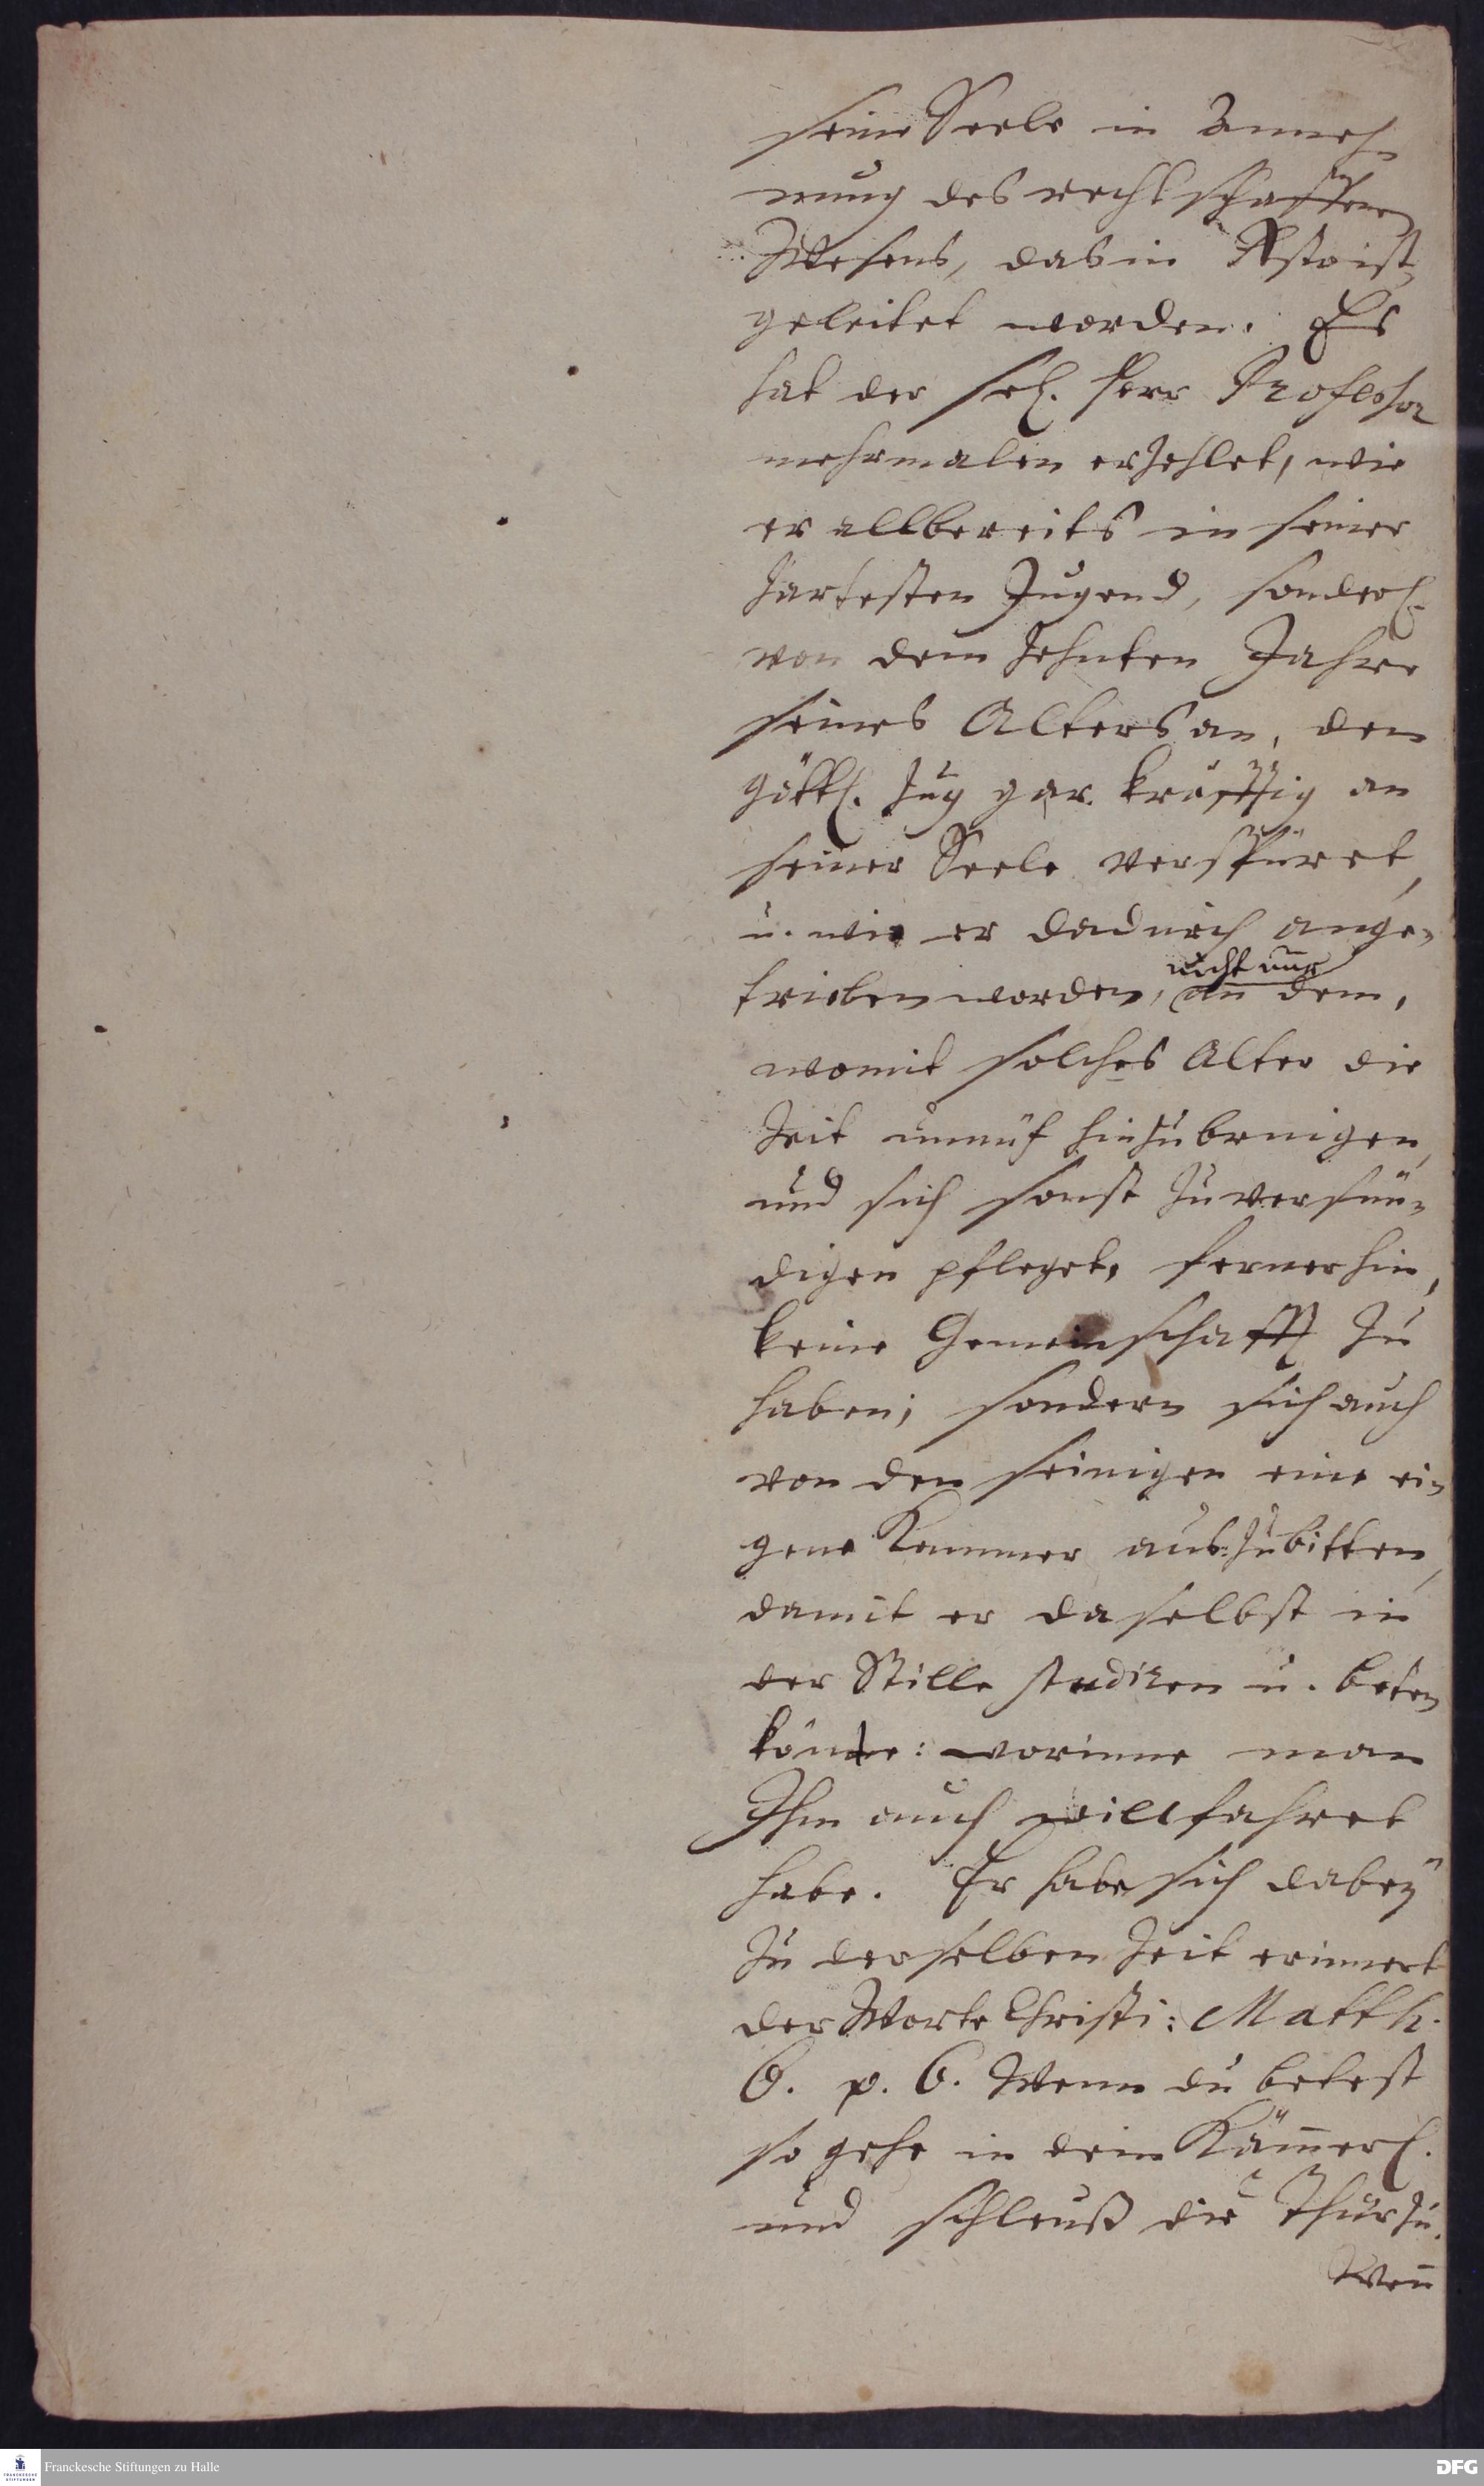 seine Seele in Anneh-
mung des rechtschaffenen
Wesens, das in Xsto ist,
geleitet worden. Es
hat der sel. Herr Professor
mehrmalen erzehlet, wie
er allbereits in seiner
zartesten Jugend, sonderl.
von dem zehnten Jahre
seines Alters an, den
göttl. Zug gar kräfftig an
seiner Seele verspüret,
u. wie er dadurch ange-
trieben worden, nicht nur an dem,
womit solches Alter die
Zeit unnütz hinzubringen,
und sich sonst zu versün-
digen pfleget, fernerhin,
keine Gemeinschafft zu
haben; sondern sich auch
von den seinigen eine ei-
gene Kammer auszubitten,
damit er daselbst in
der Stille studiren u. beten
könte: worinne man
Ihm auch willfahret
habe. Er habe sich dabey
zu derselben Zeit erinnert
der Worte Christi: Matth.
6. v. 6. Wenn du betest
so gehe in dein Kämerl.
und schleuß die Thür zu.
Wen̄
Franckesche Stiftungen zu Halle
DFG